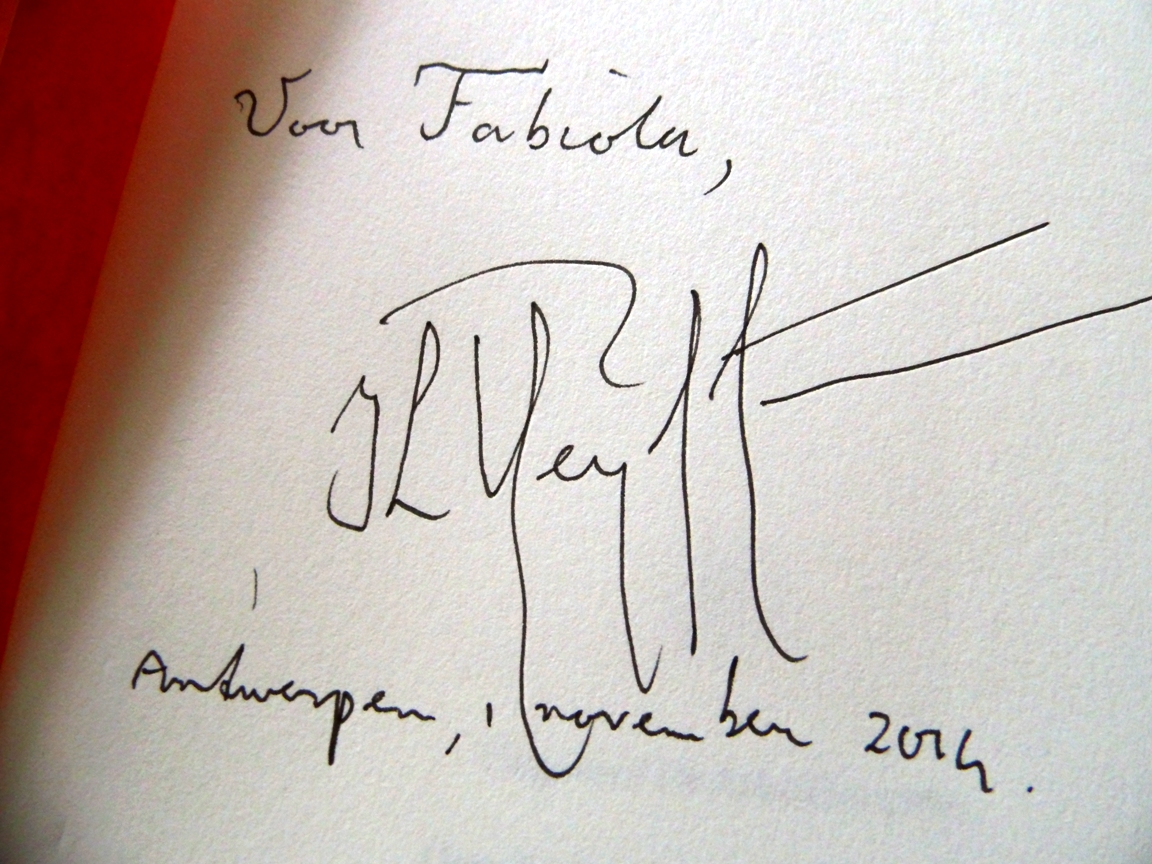 Voor Fabiola,
Antwerpen, 1 november 2014.